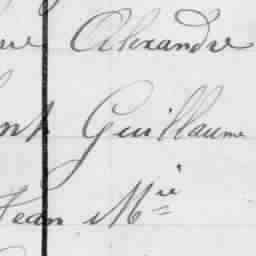 Alexandre
Guillaume
Jean Mie